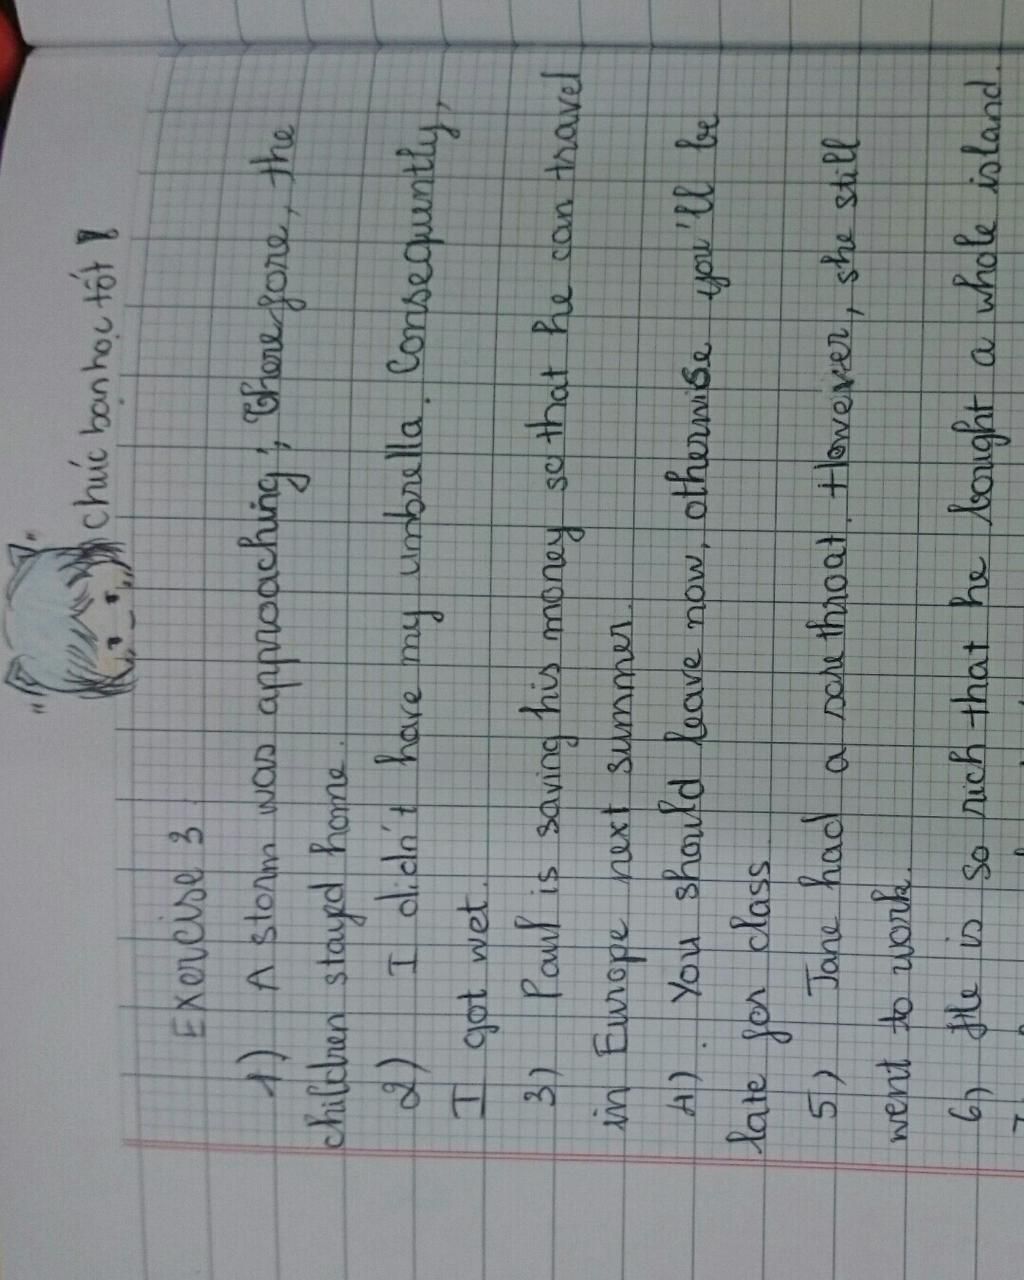 chúc bạn học tốt !
Exercise 3.
1) A storm was approaching ; therefore, the
children stayed home.
2) I didn't have my umbrella. Consequently,
I got wet.
3) Paul is saving his money so that he can travel
in Europe next summer.
4) . You should leave now, otherwise you'll be
late for class.
5) Jane had a sore throat. However, she still
went to work.
6) He is so rich that he bought a whole island.